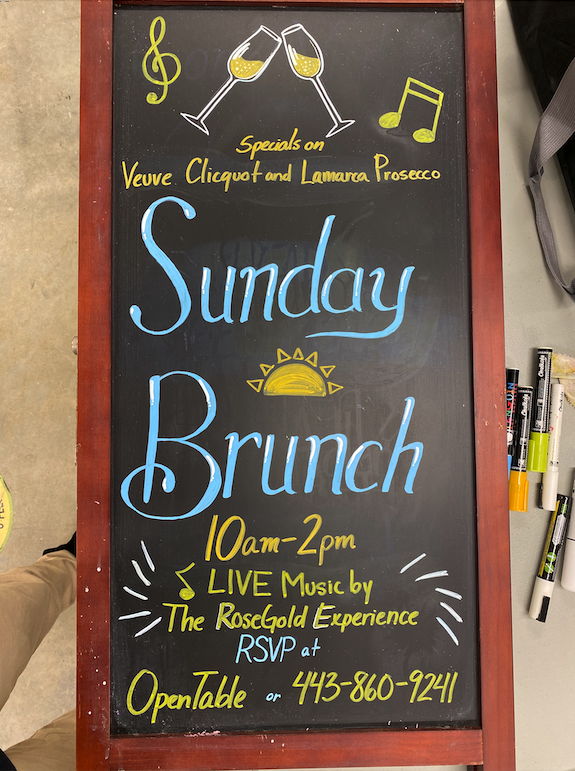 Specials on
Veuve Clicquot and Lamarca Prosecco
Sunday
Brunch
10am-2pm
LIVE Music by
The RoseGold Experience
RSVP at
OpenTable or 443-860-9241